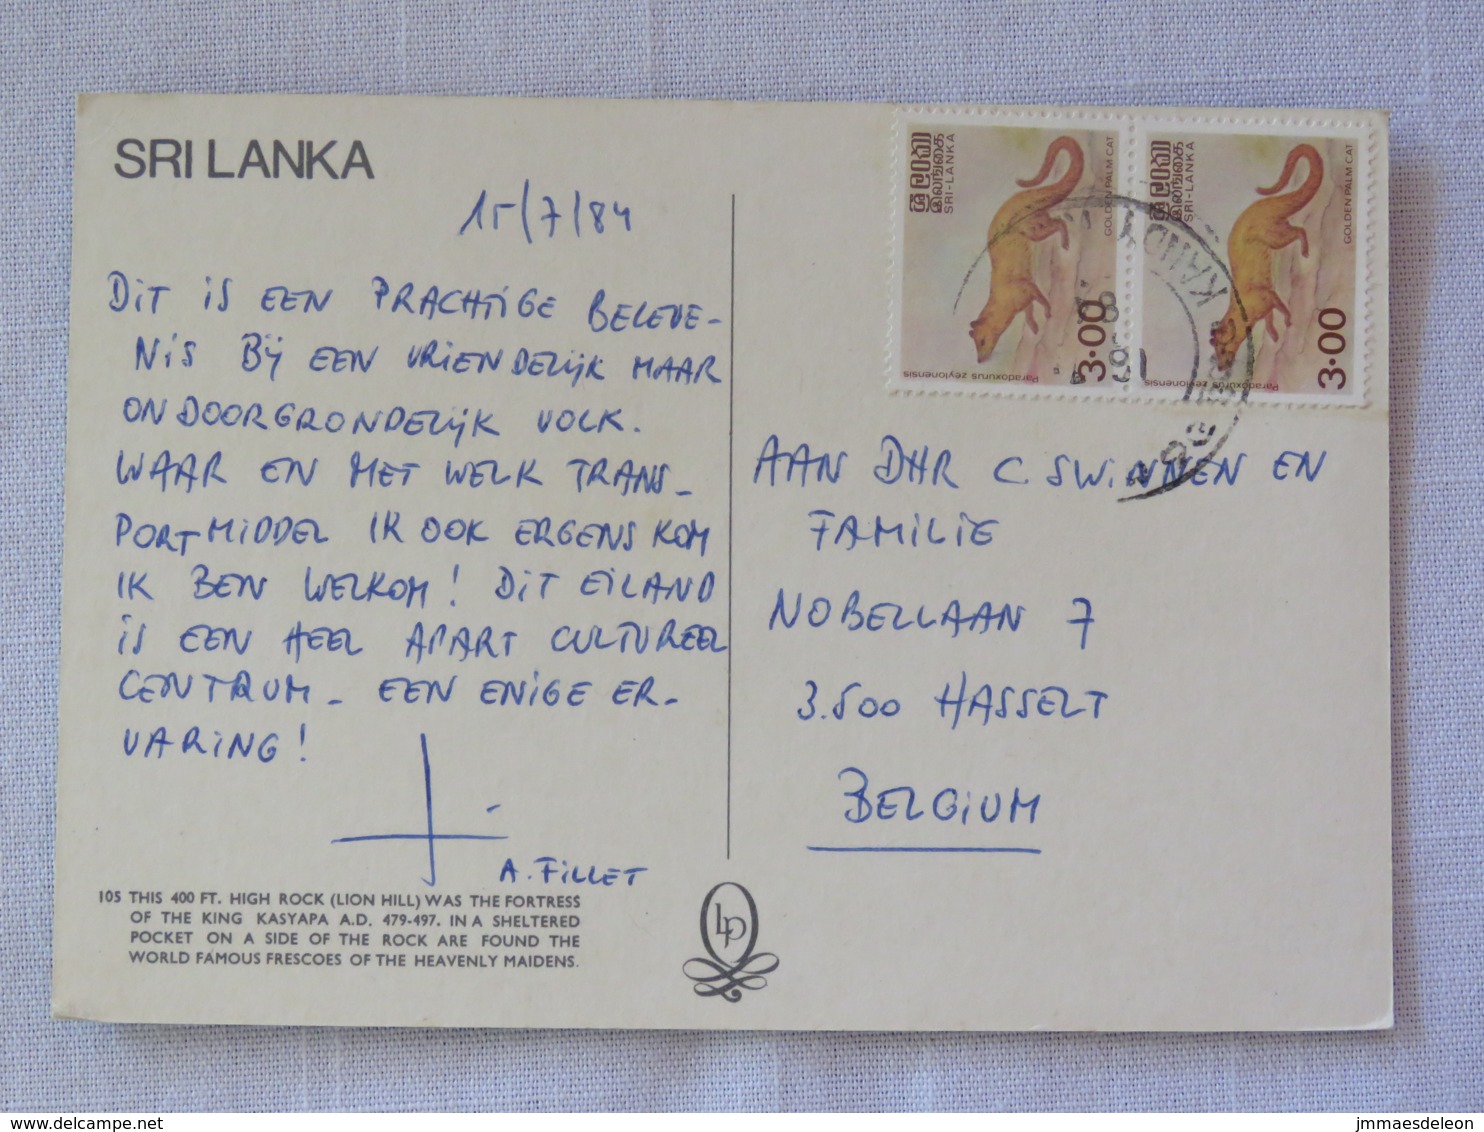 SRI LANKA
15/7/84
DIT IS EEN PRACHTIGE BELEVE-
NIS BIJ EEN VRIENDELIJK MAAR
ONDOORGRONDELIJK VOLK.
WAAR EN MET WELK TRANS-
PORTMIDDEL IK OOK ERGENS KOM
IK BEN WELKOM! DIT EILAND
IS EEN HEEL APART CULTUREEL
CENTRUM - EEN ENIGE ER-
VARING!
A. FILLET
105 THIS 400 FT. HIGH ROCK (LION HILL) WAS THE FORTRESS
OF THE KING KASYAPA A.D. 479-497. IN A SHELTERED
POCKET ON A SIDE OF THE ROCK ARE FOUND THE
WORLD FAMOUS FRESCOES OF THE HEAVENLY MAIDENS.
LP
ශ්‍රී ලංකා
இலங்கை
SRI-LANKA
GOLDEN PALM CAT
3.00
Paradoxurus zeylonensis
ශ්‍රී ලංකා
இலங்கை
SRI-LANKA
GOLDEN PALM CAT
3.00
Paradoxurus zeylonensis
KANDY
AAN DHR C SWINNEN EN
FAMILIE
NOBELLAAN 7
3.500 HASSELT
BELGIUM
delcampe.net
jmmaesdeleon